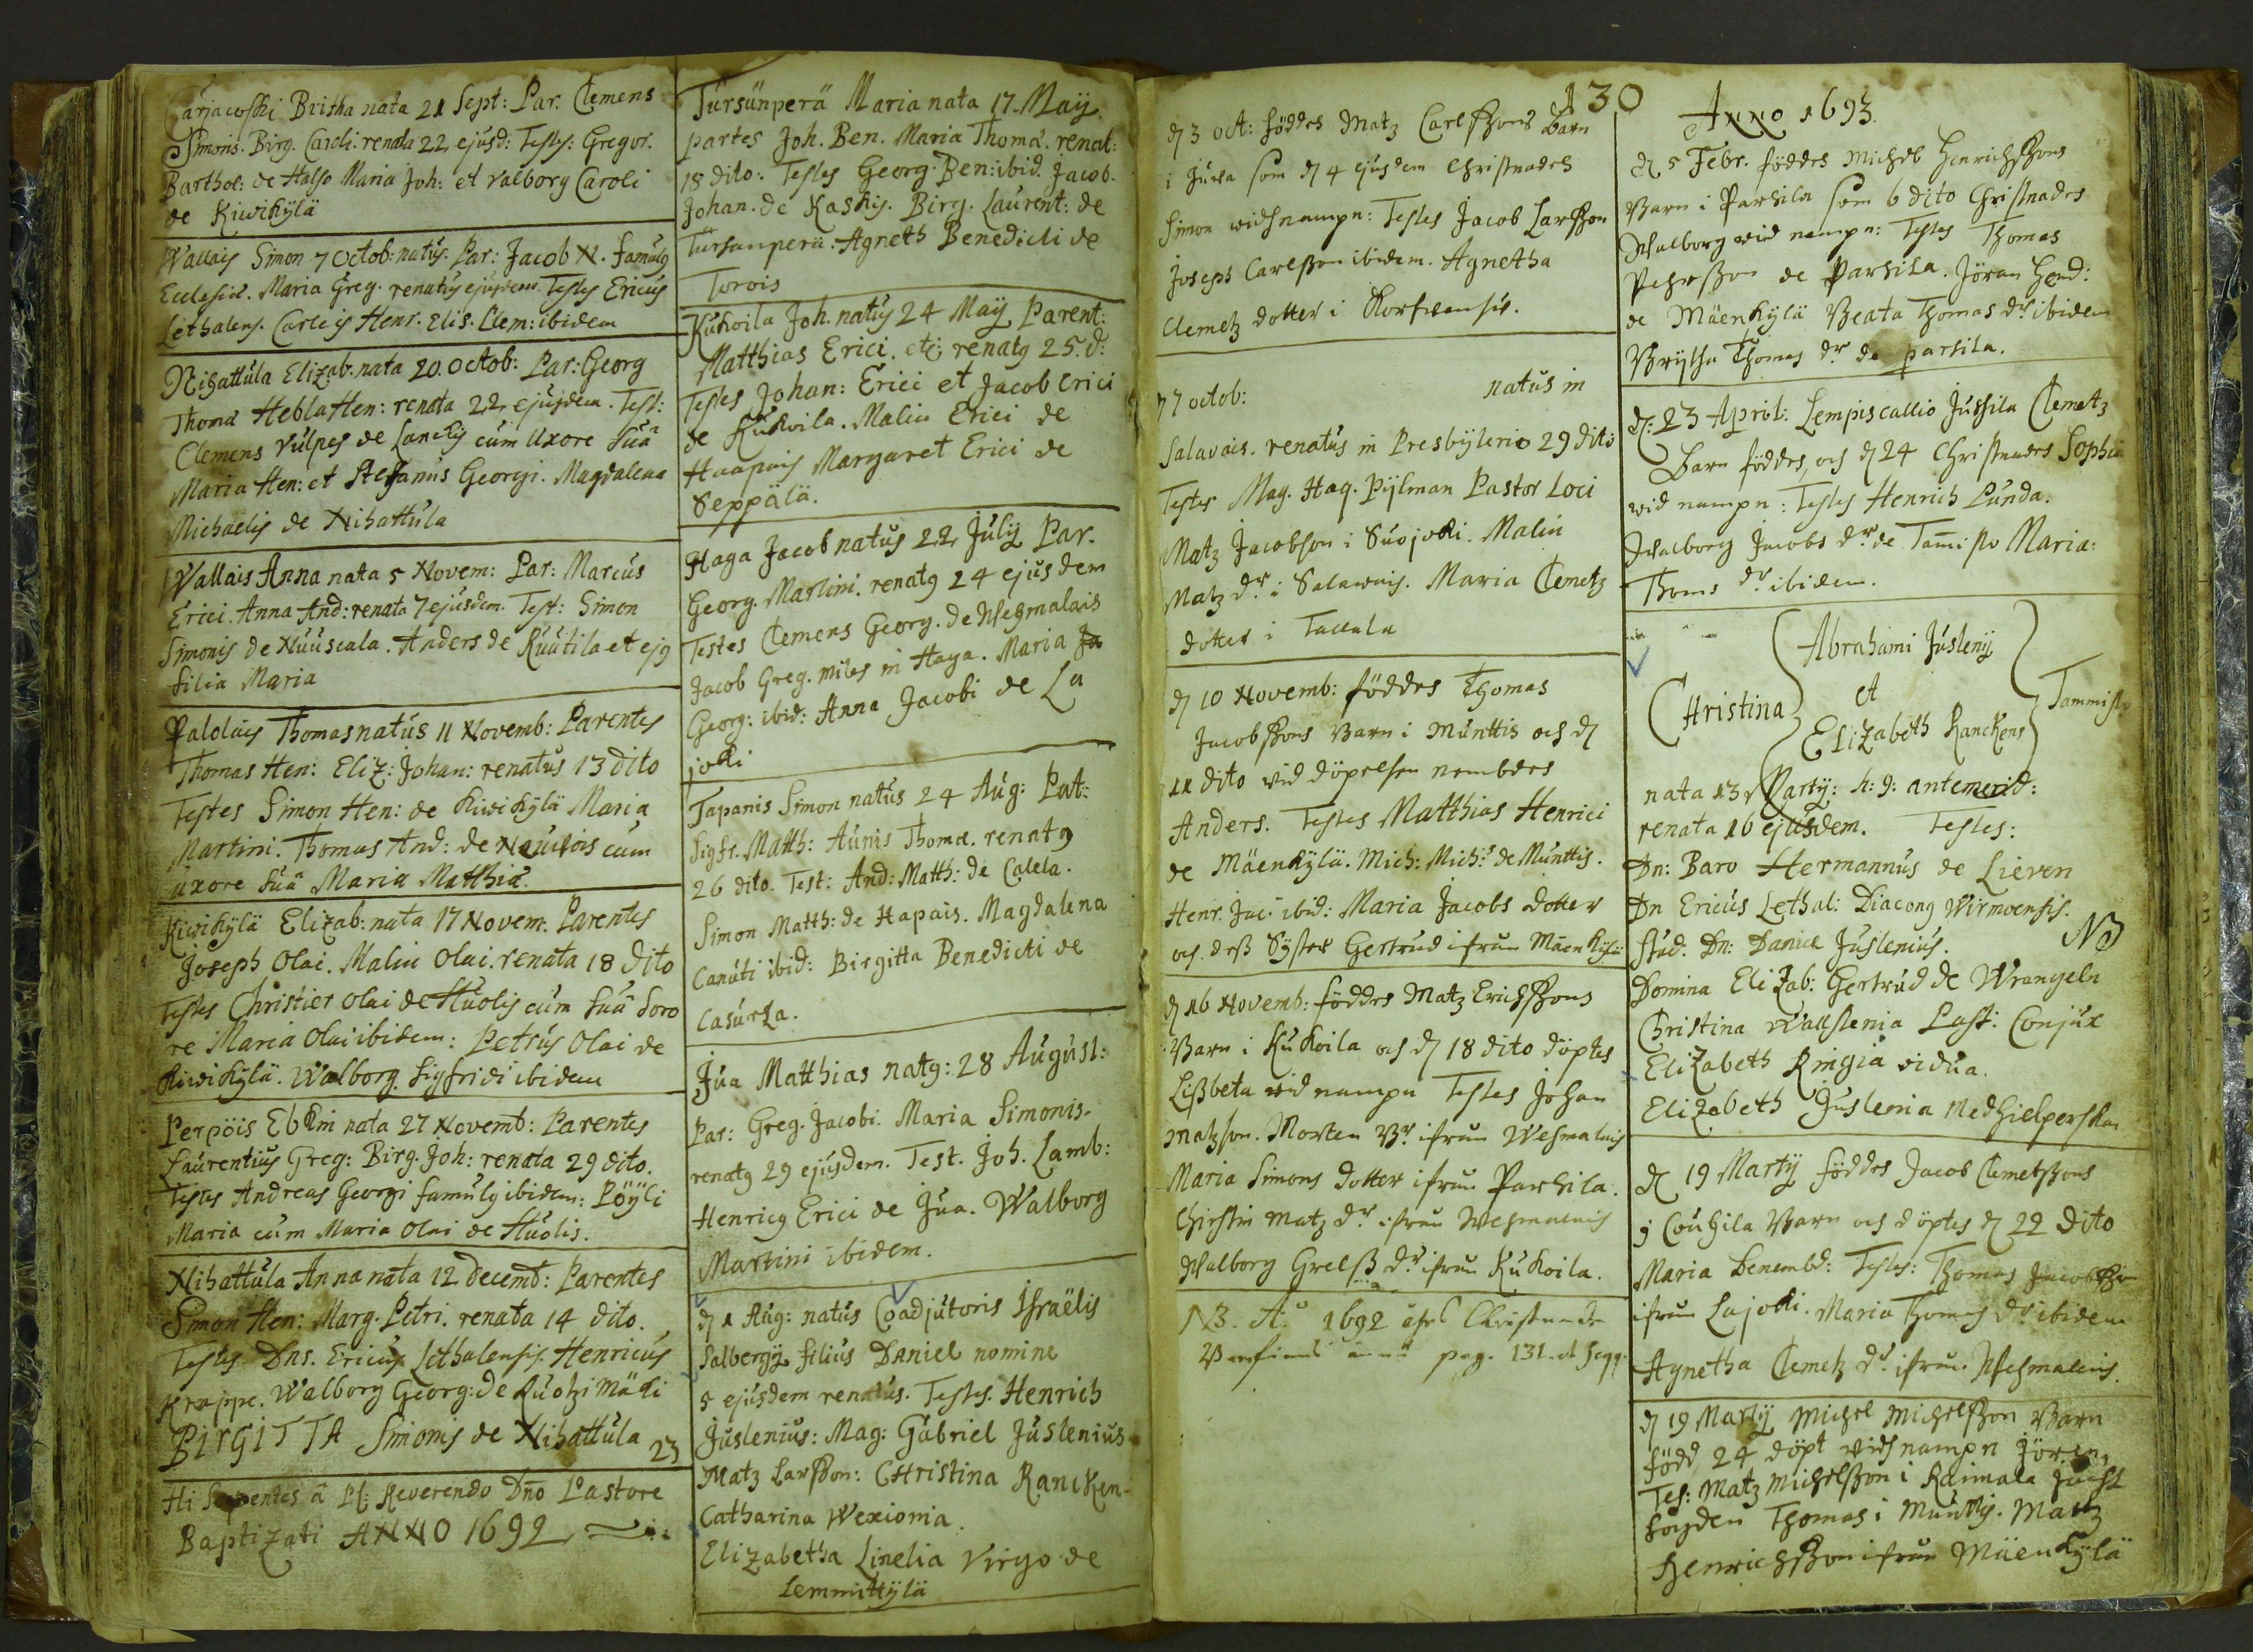 Carjacoski Britha nata 21 Sept: Par. Clemens
Simonis. Birg. Caroli. renata 22 ejusd: Testes: Gregor.
Barthol: de Halso Maria Joh: et Valborg Caroli
de Kiwikylä
Wallais Simon 7 Octob: natus. Par: Jacob N. famulus
Ecclesiæ. Maria Greg. renatus ejusdem. Testes Ericus
Lethalens. Henr. Elis. Clem: ibidem
Nihattula Elizab. nata 20. octob: Par: Georg
Thomæ Hebla Hen: renata 22 ejusdem. Test:
Clemens Vulpes de Lancky cum Uxore Suâ
Maria Hen: et Stefanus Georgi. Magdalena
Michaelis de Nihattula
Wallais Anna nata 5 Novem: Par: Marcus
Erici. Anna And: renata 7 ejusdem. Test: Simon
Simonis de Nuuscala. Anders de Kuutila et ej9
filia Maria
Palolais Thomas natus 11 Novemb: Parentes
Thomas Hen: Eliz: Johan: renatus 13 dito
Testes Simon Hen: de Kiwikylä Maria
Martini. Thomas And: de cum
uxore suâ Maria Matthiæ.
Kiwikylä Elizab: nata 17 Novem: Parentes
Joseph Olai. Malin Olai. renata 18 dito
Testes Christier Olai de Huolis cum suâ soro
re Maria Olai ibidem: Petrus Olai de
Kiwikylä. Walborg Sigfridi ibidem
Perpöis nata 27 Novemb: Parentes
Laurentius Greg: Birg. Joh: renata 29 dito.
Testes Andreas Georgi famulus ibidem: Pöyli
Maria cum Maria Olai de Huolis.
Nihattula Anna nata 12 Decemb: Parentes
Simon Hen: Marg. Petri. renata 14 dito.
Testes Dns. Ericus Lethalensis. Henricus
Krappe. Walborg Georg: de Ruotzi Mäki
BIRGITTA Simonis de Nihattula 23
Hi Sequentes â Pl: Reverendo Dno Pastore
Baptizati ANNO 1692
Tursunperä Maria nata 17. Maij.
partes Joh. Ben. Maria Thomæ. renat:
18 dito: Testes Georg. Ben: ibid. Jacob.
Johan. de Kaskis. Birg. Laurent: de
Tursunperä. Agneth Benedicti de
Torois
Kukoila Joh. natus 24 Maij Parent:
Matthias Erici. etc; renat9 25. d:
Testes Johan: Erici et Jacob Erici
de Kukoila. Malin Erici de
Haapais Margaret Erici de
Seppälä.
Haga Jacob natus 22 Julij Par.
Georg. Martini. renat9 24 ejusdem
Testes Clemens Georg. de Wehmalais
Jacob Greg. miles in Haga. Maria Ja
Georg: ibid: Anna Jacobi de La
joki
Tapanis Simon natus 24 Aug: Pat:
Sigfr. Matth: Aunis Thomæ. renat9
26 dito. Test: And: Matth: de Calela.
Simon Matth: de Hapais. Magdalena
Canuti ibid: Birgitta Benedicti de
Casurla.
Jua Matthias nat9: 28 August:
Par: Greg. Jacobi. Maria Simonis.
renat9 29 ejusdem. Test. Joh. Lamb:
Henric9 Erici de Jua. Walborg
Martini ibidem.
d 1 Aug: natus Coadjutoris Israëlis
Salbergij filius Daniel nomine
5 ejusdem renatus. Testes. Henrich
Juslenius: Mag: Gabriel Juslenius
Matz Larsson: Christina Rancken-
Catharina Wexionia.
Elizabetha Linelia Virgo de
Lemmittylä
130
d 3 oct: föddes Matz Carlssons Barn
i Juva som d 4 ejusdem Christnades
Simon widh nampn: Testes Jacob Larsson
Joseph Carlsson ibidem. Agnetha
Clemetz dotter i
7 octob: natus in
Salavais. renatus in Presbyterio 29 dito
Testes Mag. Haq. Pijlman Pastor Loci
Matz Jacobson i Suojoki. Malin
Matz dr i Salawais. Maria Clemetz
dotter i Tallala
d 10 Novemb: föddes Thomas
Jacobssons Barn i Munttis och d
11 dito vid döpelsen nembdes
Anders. Testes Matthias Henrici
de Mäenkylä. Mich: Mich: de Munttis.
Henr. Jac: ibid: Maria Jacobs dotter
och dess Syster Gertrud ifrån Mäenkylä
d 16 Novemb: föddes Matz Erichssons
Barn i Kukoila och d 18 dito döptes
Lissbeta wid nampn Testes Johan
Matzson. Morten Br ifrån Wehmalais
Maria Simons dotter ifrån Parsila.
Chirstin Matz dr ifrån Wehmalais
Walborg Grelss dr ifrån Kukoila.
NB. Ao 1692 åhrs Christnade
pag. 131. et seqq.
Anno 1693.
d 5 Febr. föddes Michel Henrichssons
Barn i Parsila som 6 dito Christnades
Walborg wid nampn: Testes Thomas
Pehrsson de Parsila. Jöran Hend:
de Mäenkylä Beata Thomas dr ibidem
Brytha Thomas dr de parsila.
d: 23 April: Lempiscallio Jussila Clemetz
Barn föddes, och d 24 Christnades Sophia
wid nampn: Testes Henrich Lunda.
Walborg Jacobs dr de Tammisto Maria:
Thoms dr ibidem.
Christina
Abrahami Juslenij
et
Elizabeth Ranckens
Tammisto
nata 13 Martij: h: 9: antemerid:
renata 16 ejusdem. Testes:
Dn: Baro Hermannus de Lieven
Dn Ericus Lethal: Diacon9 Wirmoensis.
Stud. Dn: Daniel Juslenius. NB
Domina Elizab: Gertrud de Wrangeln
Christina Wallstenia Past: Conjux
Elizabeth Ringia vidua.
Elizabeth Juslenia Medhielperskan
d 19 Martij föddes Jacob Clemetssons
i Couhila Barn och döptes d 22 dito
Maria benembd: Testes: Thomas Jacobsson
ifrån Lajoki. Maria Thomas dr ibidem
Agnetha Clemetz dr ifrån Wehmalais.
d 19 Martij Michel Michelsson Barn
född, 24 döpt widh nampn Jören,
Tes: Matz Michelsson i Raimala
Thomas i Munttis. Matz
Henrichsson ifrån Mäenkylä